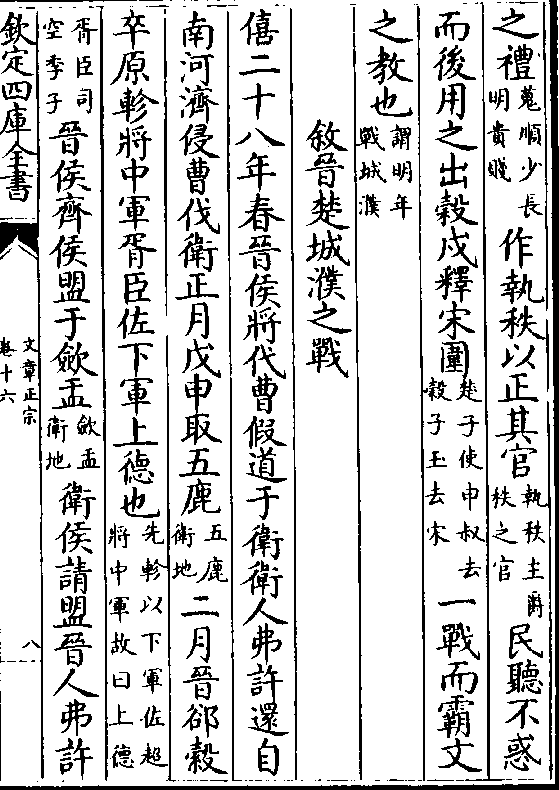 之禮蒐順少長明貴賤作執秩以正其官執秩主爵秩之官民聽不惑
而後用之出穀戍釋宋圍楚子使申叔去穀子玉去宋一戰而霸文
之教也謂明年戰城濮
敘晉楚城濮之戰
僖二十八年春晉侯將伐曹假道于衛衛人弗許還自
南河濟侵曹伐衛正月戊申取五鹿五鹿衛地二月晉郤縠
卒原軫將中軍胥臣佐下軍上德也先軫以下軍佐超將中軍故曰上德
胥臣司空季子晉侯齊侯盟于斂盂斂盂衛地衛侯請盟晉人弗許
欽定四庫全書
文章正宗
卷十六
八